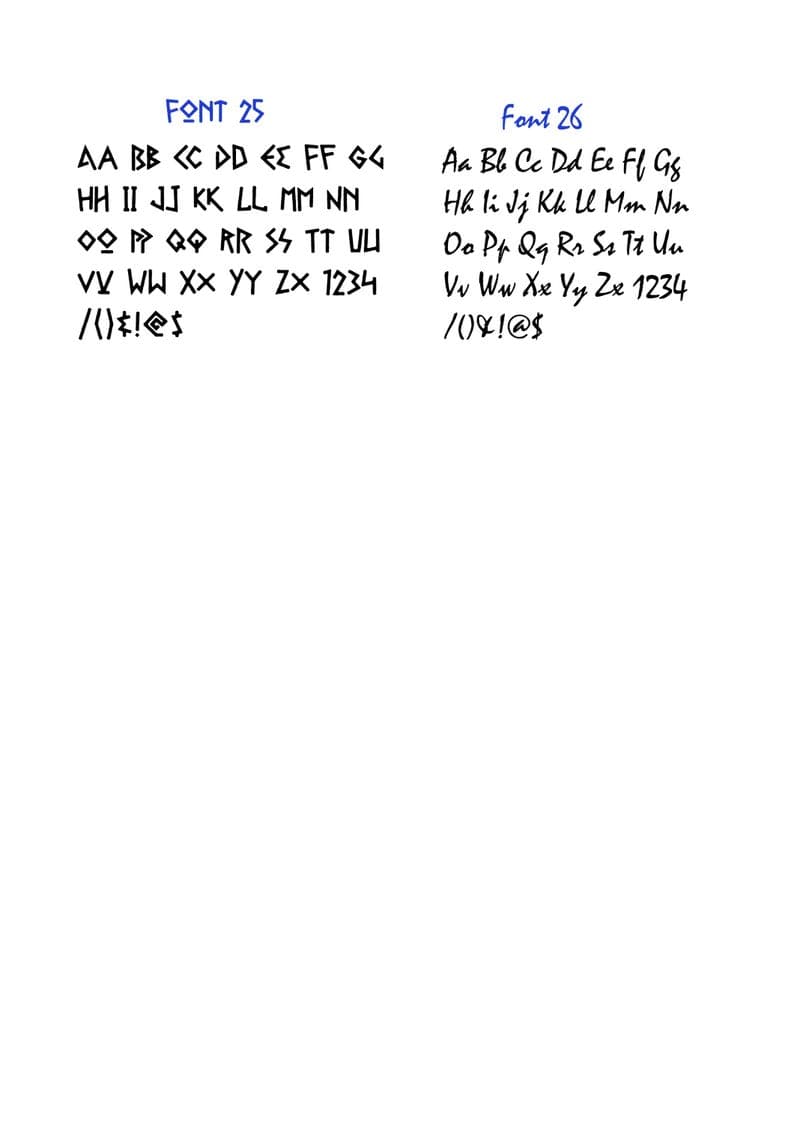 FONT 25
AA BB CC DD EE FF GG
HH II JJ KK LL MM NN
OO PP QQ RR SS TT UU
VV WW XX YY ZX 1234
/()&!@$
Font 26
Aa Bb Cc Dd Ee Ff Gg
Hh Ii Jj Kk Ll Mm Nn
Oo Pp Qq Rr Ss Tt Uu
Vv Ww Xx Yy Zz 1234
/()&!@$